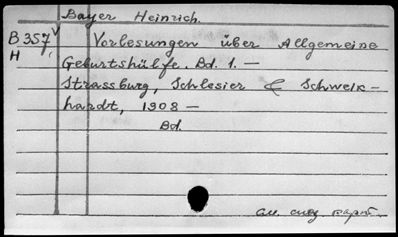 Bayer Heinrich.
B 357 V Vorlesungen über Allgemeine
H Geburtshülfe. Bd. 1. —
Strassburg, Schlesier & Schweik-
hardt, 1908 —
Bd.
см. след карт.